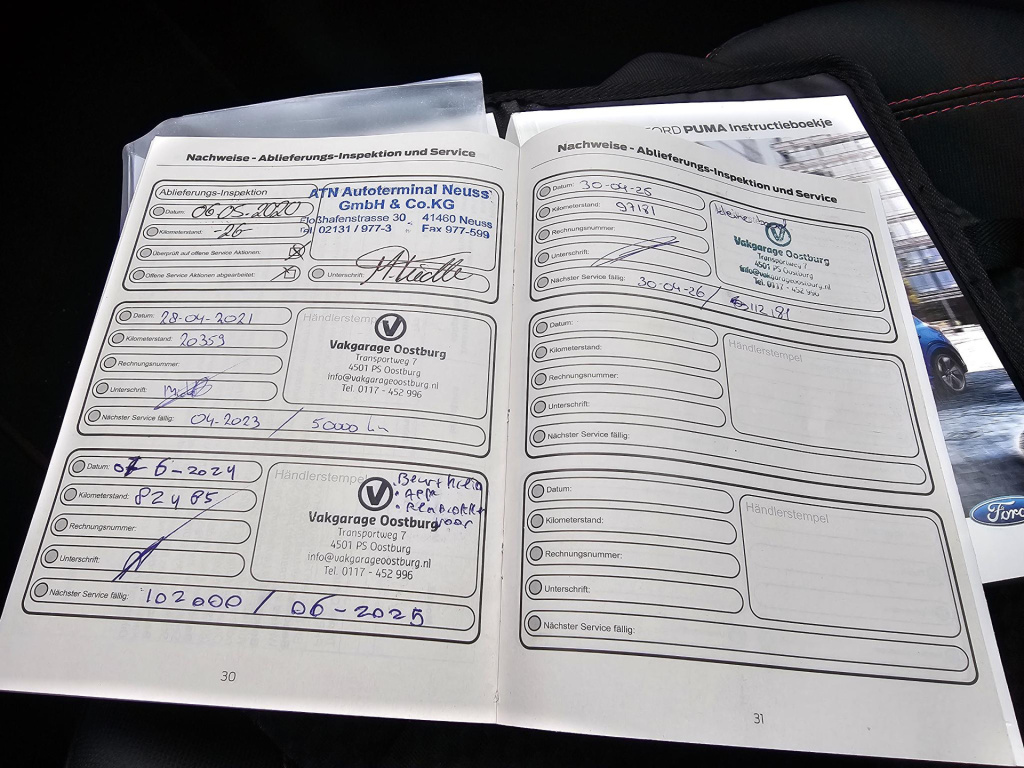 FORD PUMA Instructieboekje
Nachweise - Ablieferungs-Inspektion und Service
Ablieferungs-Inspektion
Datum: 06.05-2020
Kilometerstand: -26-
Überprüft auf offene Service Aktionen:
Offene Service Aktionen abgearbeitet:
Unterschrift:
ATN Autoterminal Neuss
GmbH & Co.KG
Floßhafenstrasse 30 41460 Neuss
Tel. 02131 / 977-3 Fax 977-599
Datum: 28-04-2021
Kilometerstand: 20359
Rechnungsnummer:
Unterschrift:
Nächster Service fällig: 04-2023 / 50000 km
Händlerstempel
Vakgarage Oostburg
Transportweg 7
4501 PS Oostburg
info@vakgarageoostburg.nl
Tel. 0117 - 452 996
Datum: 07 6-2024
Kilometerstand: 82485
Rechnungsnummer:
Unterschrift:
Nächster Service fällig: 102000 / 06-2025
Händlerstempel
• APK
voor
Vakgarage Oostburg
Transportweg 7
4501 PS Oostburg
info@vakgarageoostburg.nl
Tel. 0117 - 452 996
30
Nachweise - Ablieferungs-Inspektion und Service
Datum: 30-04-25
Kilometerstand: 97181
Rechnungsnummer:
Unterschrift:
Nächster Service fällig: 30-04-26 / 112181
Vakgarage Oostburg
Transportweg 7
4501 PS Oostburg
info@vakgarageoostburg.nl
Tel. 0117 - 452 996
Datum:
Kilometerstand:
Rechnungsnummer:
Unterschrift:
Nächster Service fällig:
Händlerstempel
Datum:
Kilometerstand:
Rechnungsnummer:
Unterschrift:
Nächster Service fällig:
Händlerstempel
31
Ford